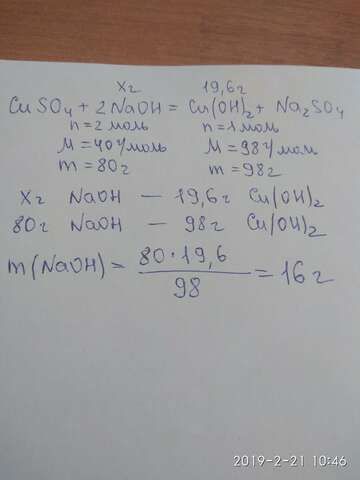 xг 19,6г
CuSO₄ + 2NaOH = Cu(OH)₂ + Na₂SO₄
n = 2 моль n = 1 моль
M = 40г/моль M = 98г/моль
m = 80г m = 98г
xг NaOH — 19,6г Cu(OH)₂
80г NaOH — 98г Cu(OH)₂
m(NaOH) = 80·19,6 / 98 = 16г
2019-2-21 10:46